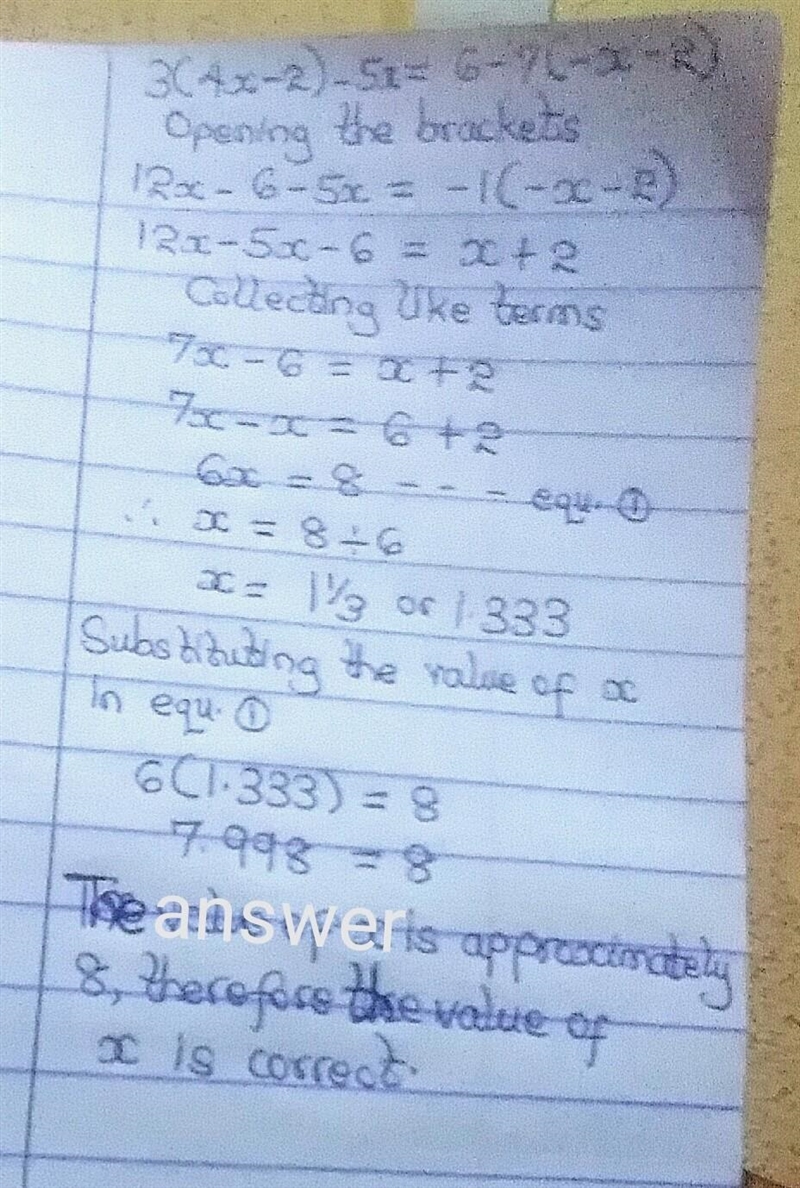 3(4x-2)-5x= 6-7(-x-2)
Opening the brackets
12x- 6-5x = -1(-x-2)
12x-5x-6 = x+2
Collecting like terms
7x-6 = x+2
7x-x = 6+2
6x = 8 --- equ. ①
∴ x = 8÷6
x= 1⅓ or 1.333
Substituting the value of x
in equ. ①
6(1.333) = 8
7.998 = 8
The answer is approximately
8, therefore the value of
x is correct.